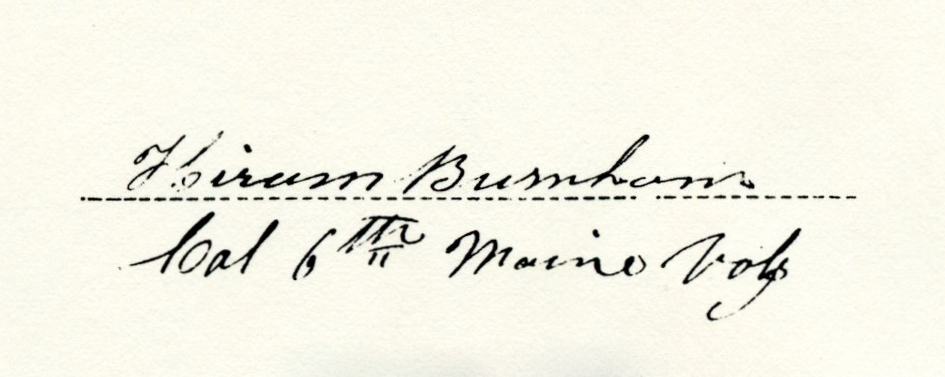 Hiram Burnham
Col 6th Maine Vols